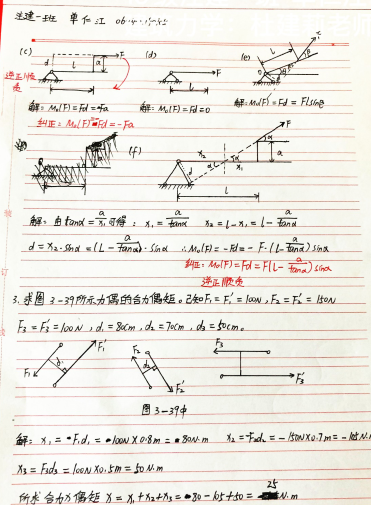 (c) (d) (e)
逆正顺负
解: M₀(F)=Fd=-Fa 解: M₀(F)=Fd=0 解: M₀(F)=Fd=Flsinβ
纠正: M₀(F)=Fd=-Fa
(f)
解: 由tanα=a/x₁可得: x₁=a/tanα x₂=l-x₁=l-a/tanα
d=x₂·sinα=(l-a/tanα)·sinα ∴M₀(F)=-Fd=-F·(l-a/tanα)sinα
纠正: M₀(F)=Fd=F(l-a/tanα)sinα
逆正顺负
3.求图3-39所示力偶的合力偶矩。已知F₁=F₁'=100N,F₂=F₂'=150N
F₃=F₃'=100N,d₁=80cm,d₂=70cm,d₃=50cm。
F₁ d₁ F₁' F₂ d₂ F₂' F₃ F₃'
图3-39中
解: x₁=F₁d₁=100N×0.8m=80N.m x₂=-F₂d₂=-150N×0.7m=-105N.m
x₃=F₃d₃=100N×0.5m=50N.m
所求合力偶矩x=x₁+x₂+x₃=80-105+50=25N.m